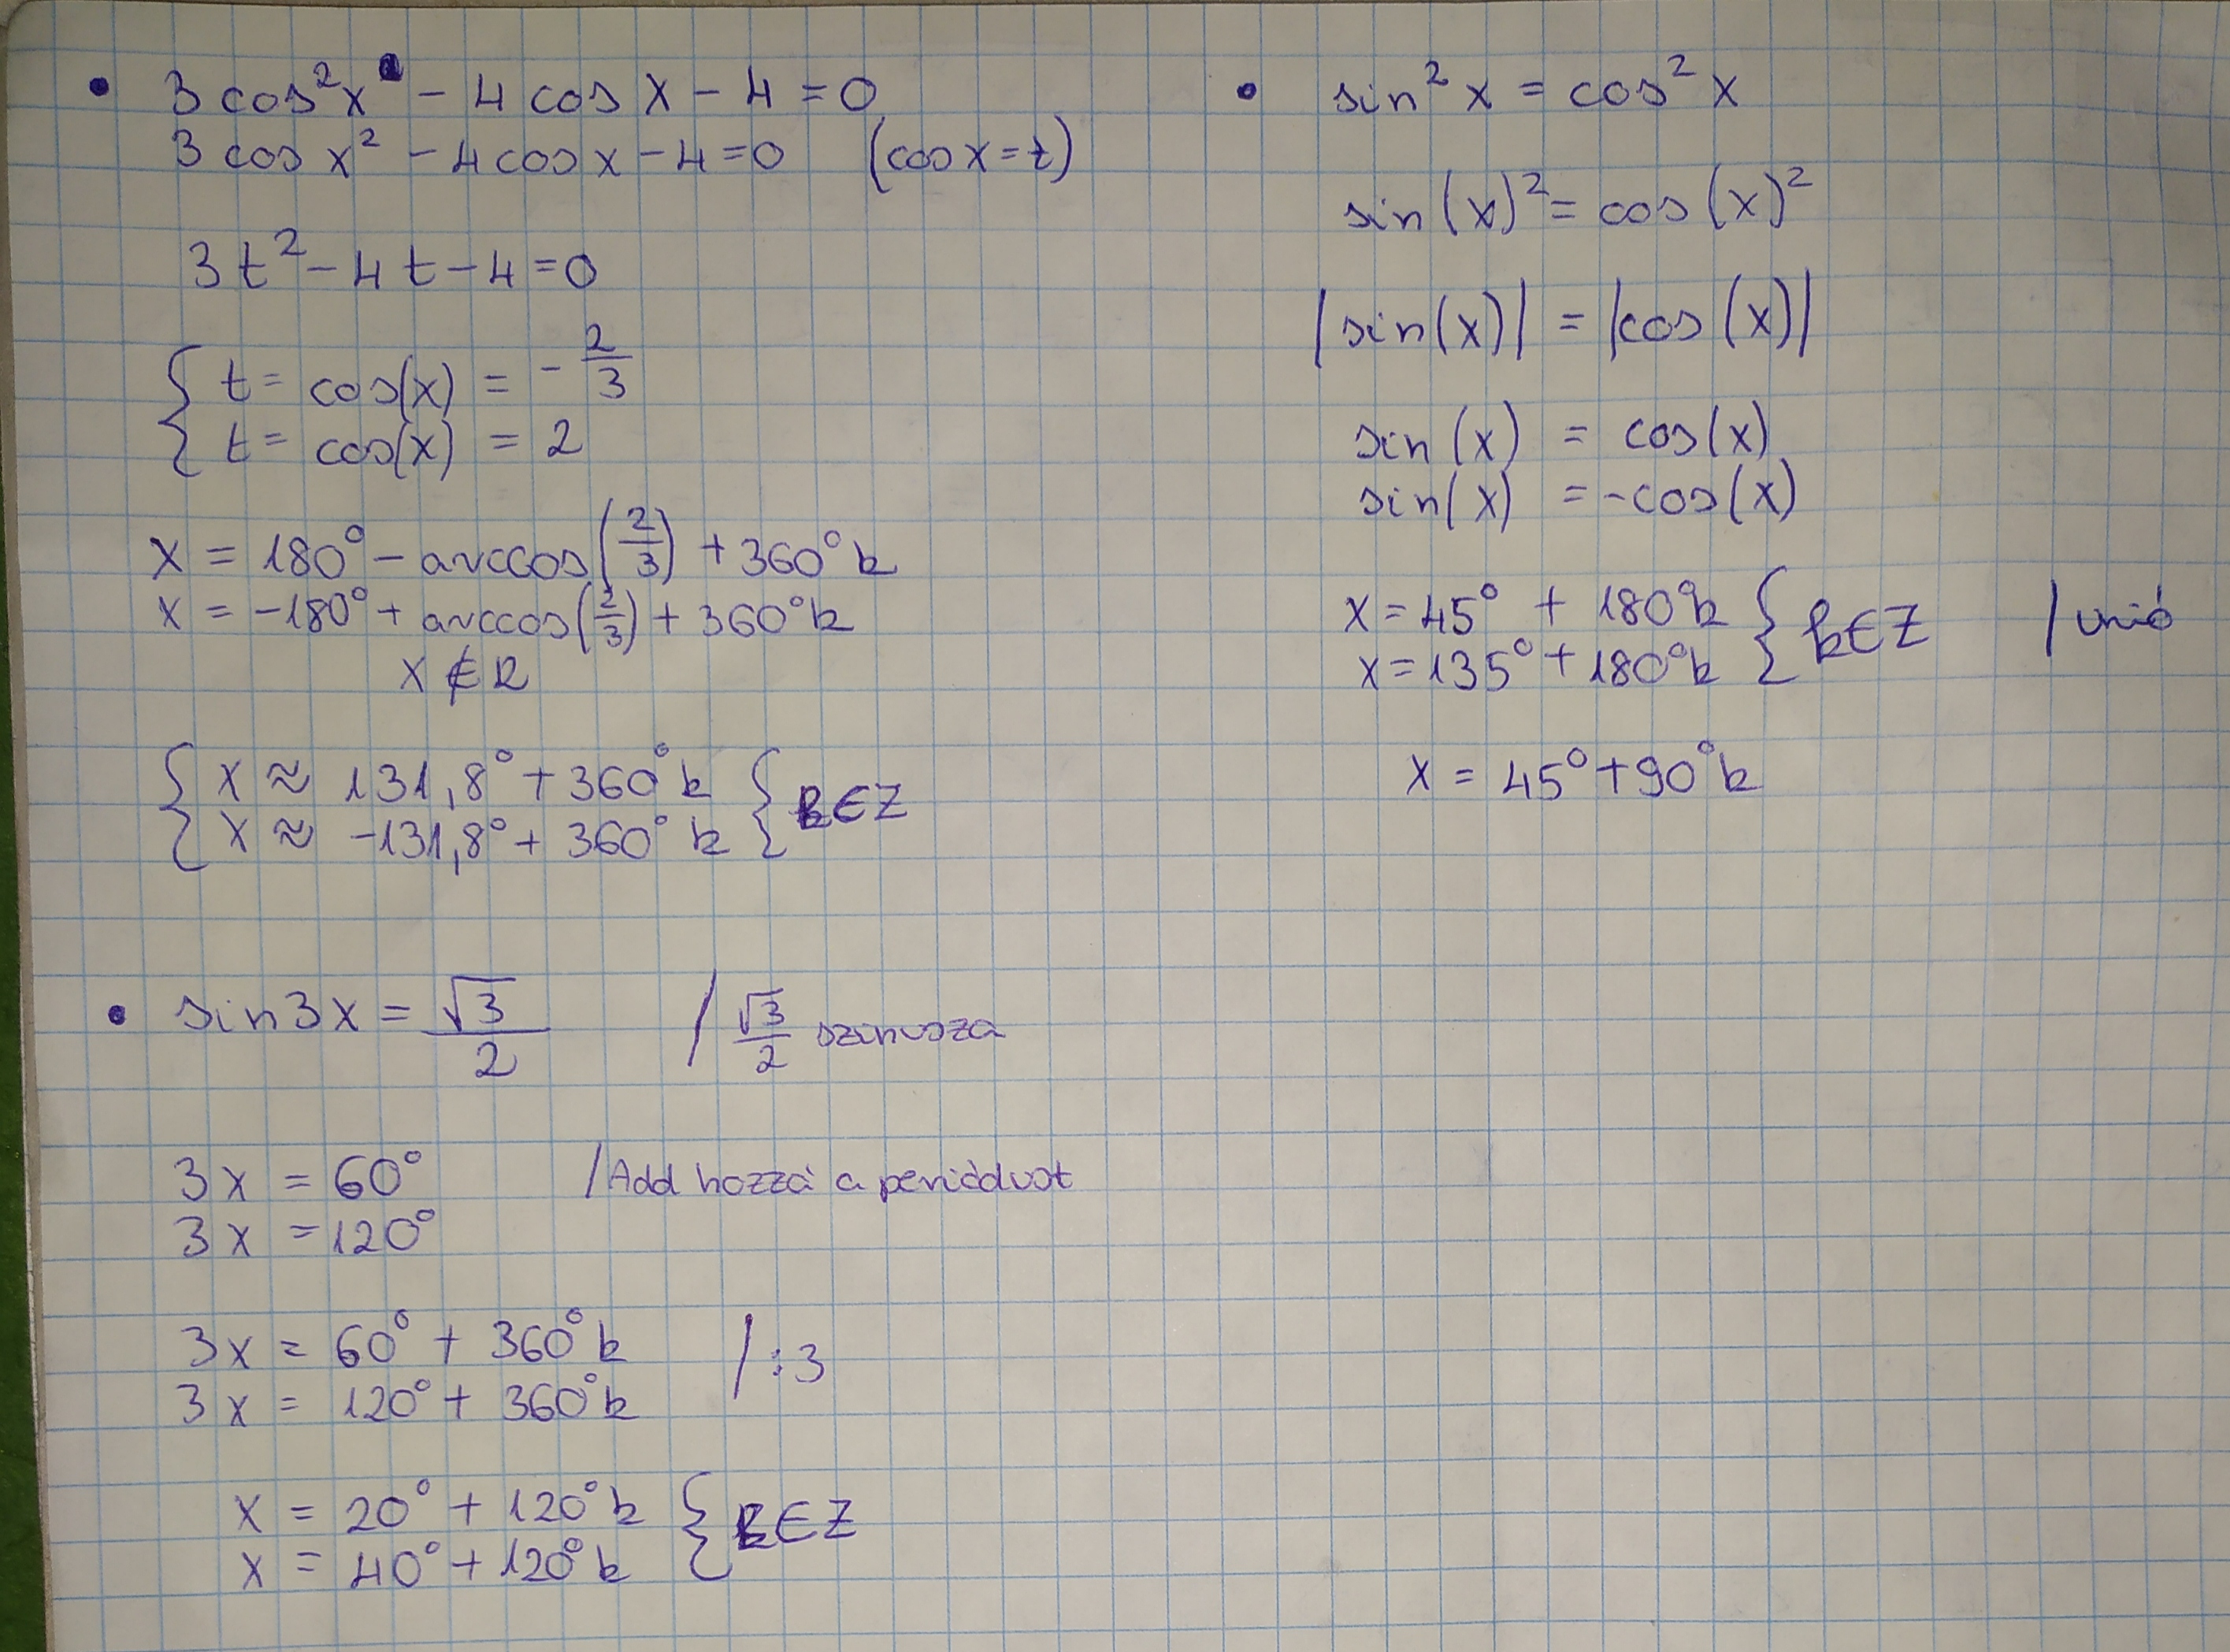 • 3 cos²x - 4 cos x - 4 = 0
3 cos x² - 4 cos x - 4 = 0 (cos x = t)
3t² - 4t - 4 = 0
{ t = cos(x) = - 2/3
{ t = cos(x) = 2
x = 180° - arccos(2/3) + 360°k
x = -180° + arccos(2/3) + 360°k
x ∉ R
{ x ≈ 131,8° + 360°k } k ∈ Z
{ x ≈ -131,8° + 360°k
• sin 3x = √3/2 / √3/2 szinusza
3x = 60° / Add hozzá a periódust
3x = 120°
3x = 60° + 360°k / :3
3x = 120° + 360°k
x = 20° + 120°k { k ∈ Z
x = 40° + 120°k
• sin² x = cos² x
sin(x)² = cos(x)²
|sin(x)| = |cos(x)|
sin(x) = cos(x)
sin(x) = -cos(x)
x = 45° + 180°k { k ∈ Z / unió
x = 135° + 180°k
x = 45° + 90°k